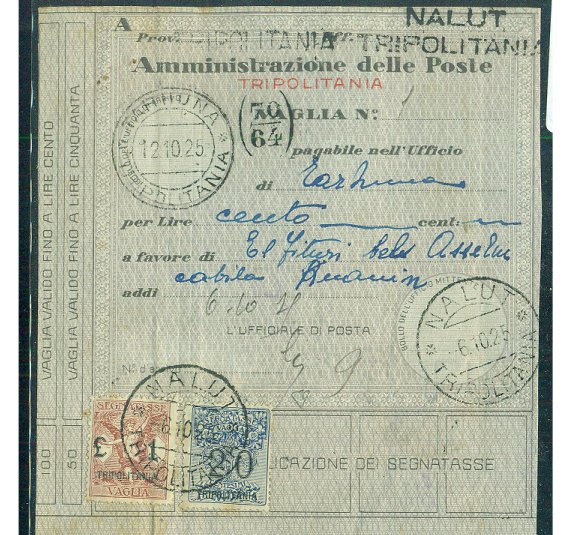 NALUT
TRIPOLITANIA
A
Prov. TRIPOLITANIA Uff.
Amministrazione delle Poste
TRIPOLITANIA
70
64
VAGLIA N.º 1
pagabile nell'Ufficio
di Tarhuna
per Lire cento cent.
a favore di El Fituri
cabila
addì 6.10.25
L'UFFICIALE DI POSTA
TARHUNA
12.10.25
TRIPOLITANIA
NALUT
-6.10.25
TRIPOLITANIA
VAGLIA VALIDO FINO A LIRE CENTO
VAGLIA VALIDO FINO A LIRE CINQUANTA
100
50
NALUT
6.10.25
TRIPOLITANIA
SEGNATASSE
£ 1
TRIPOLITANIA
VAGLIA
20
TRIPOLITANIA
LICAZIONE DEI SEGNATASSE